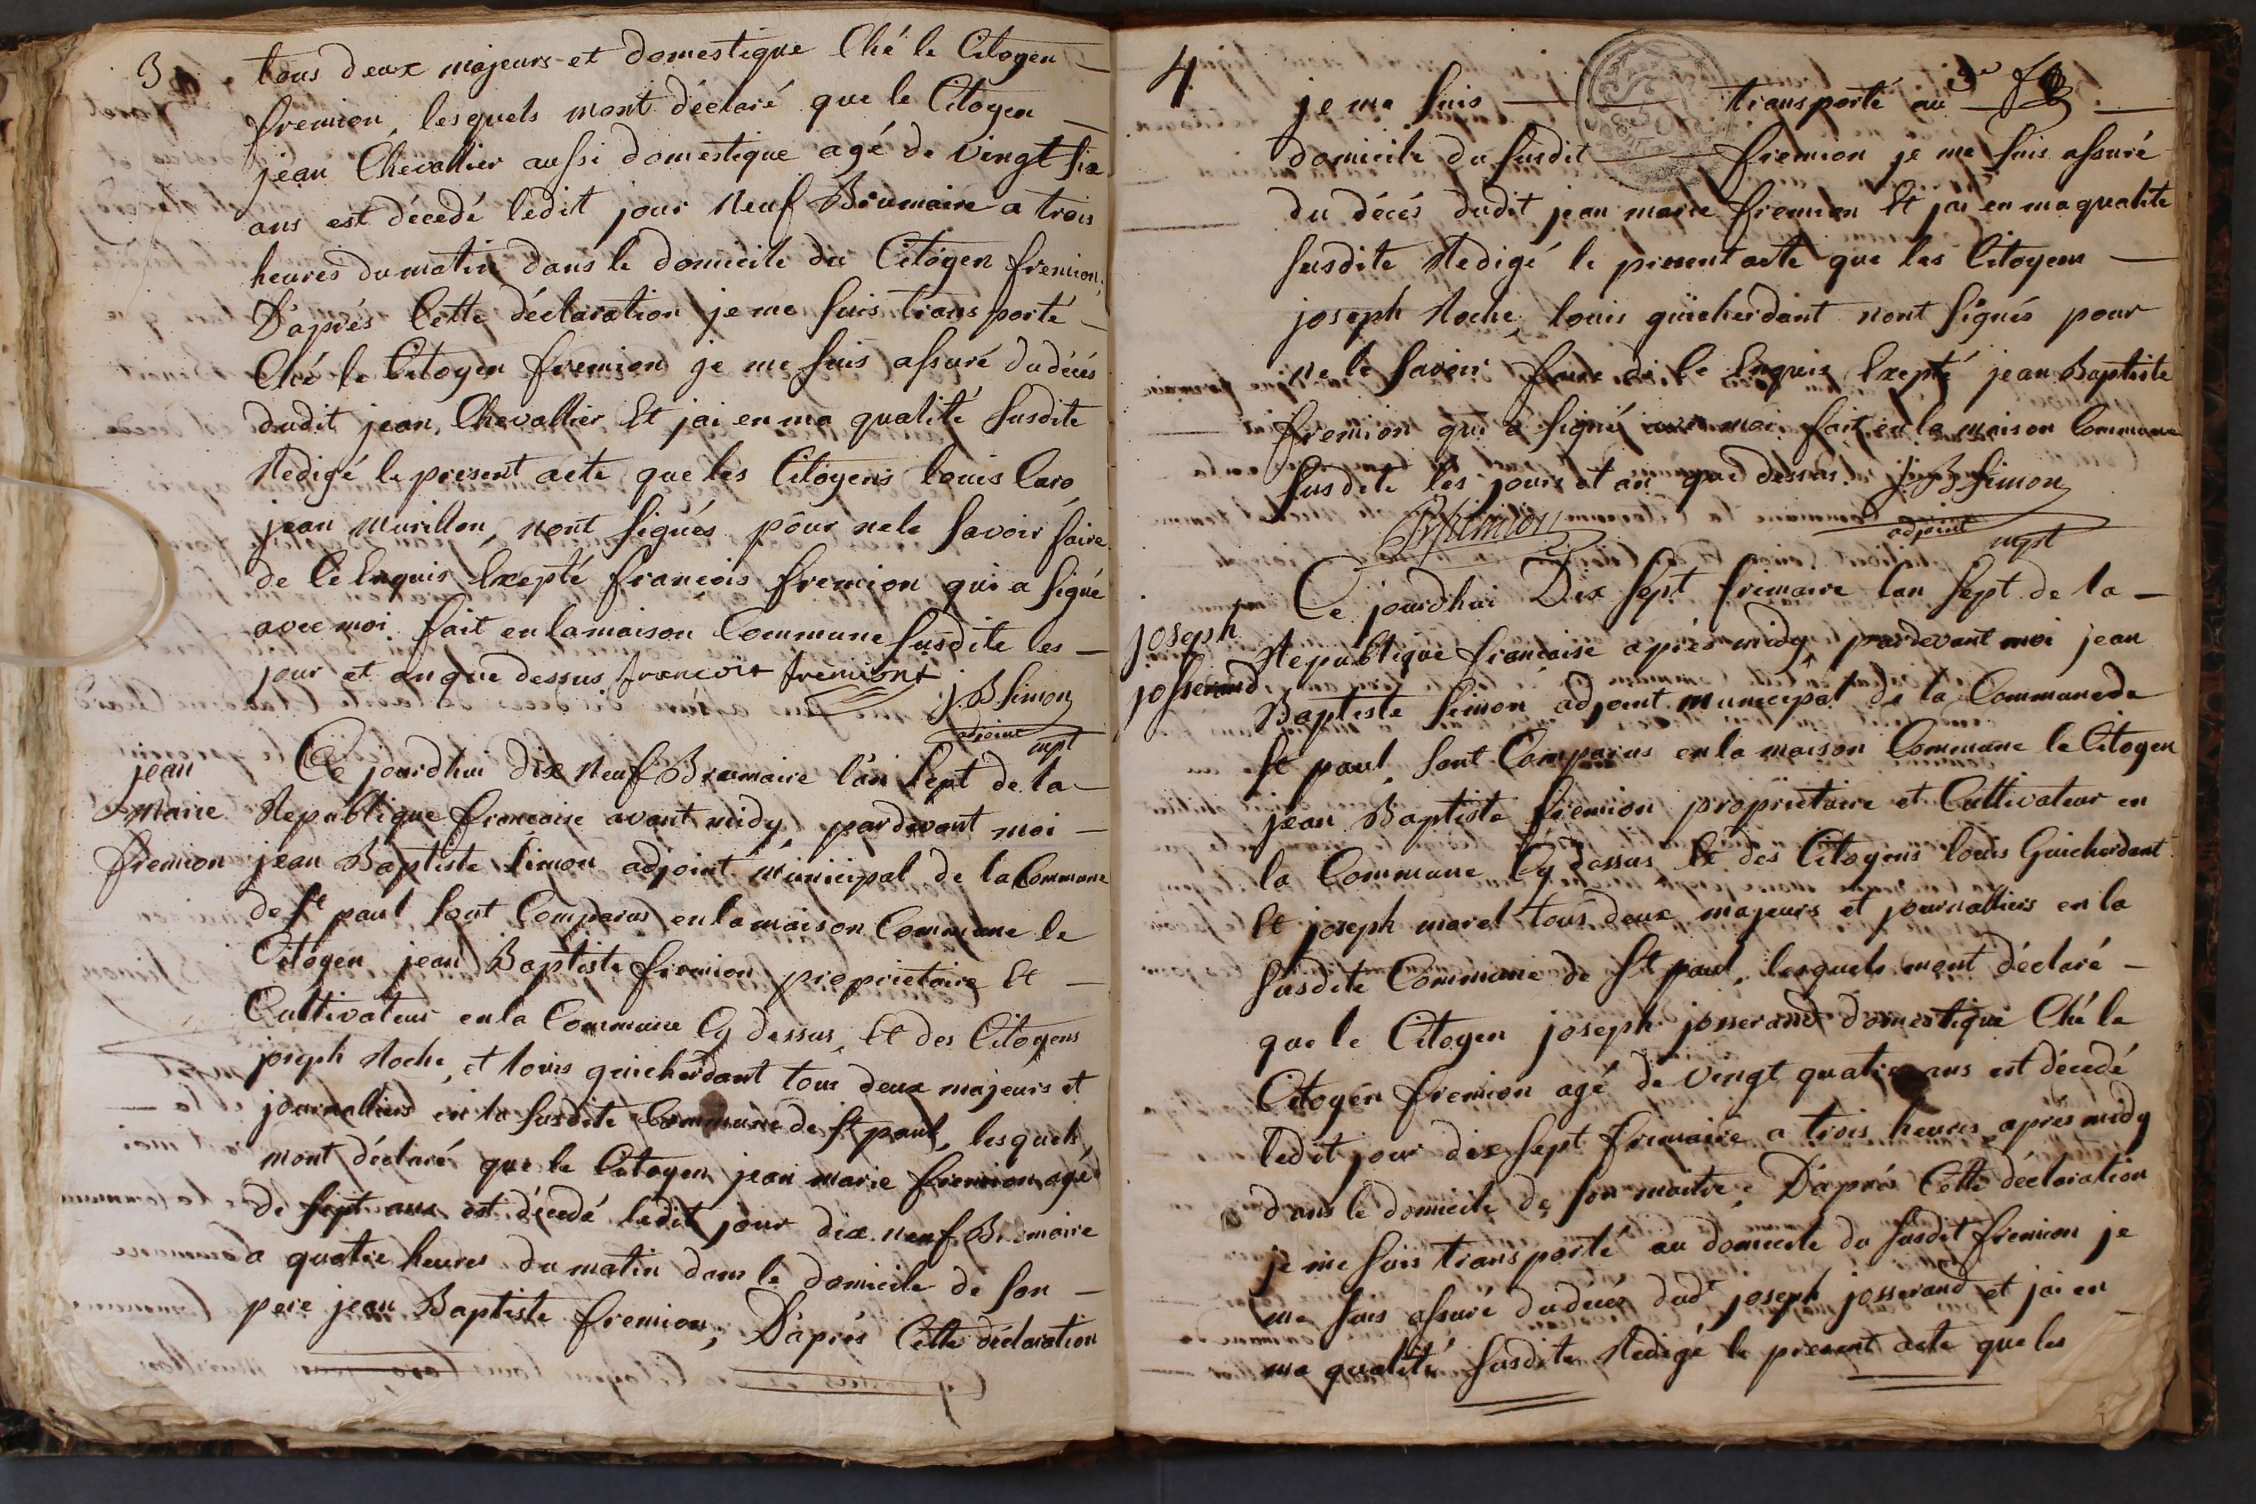 3
tous deux majeurs et domestique Ché le Citoyen
fremion, lesquels mont déclaré que le Citoyen
jean Chevallier aussi domestique agé de vingt six
ans est décedé ledit jour neuf Brumaire a trois
heures du matin dans le domicile du Citoyen fremion,
D'aprés Cette déclaration je me suis transporté
Ché le Citoyen fremion je me suis assuré du décés
dudit jean Chevallier Et jai en ma qualité susdite
Redigé le present acte que les Citoyens louis Caro
jean murillon, nont signés pour ne le savoir faire
de Ce Enquis Exepté francois fremion qui a signé
avec moi fait en la maison Commune susdite les
jour et an que dessus francois fremiont
j. B. Simon
adjoint mpl
jean
marie
fremion
Ce jourdhui dix neuf Brumaire l'an sept de la
Republique francaise avant midy pardevant moi
jean Baptiste Simon adjoint municipal de la Commune
de St paul sont Comparus en la maison Commune le
Citoyen jean Baptiste fremion proprietaire Et
Cultivateur en la Commune Cy dessus, Et des Citoyens
joseph Roche, et louis guicherdant tous deux majeurs et
journalliers en la susdite Commune de St paul, lesquels
mont déclaré que le Citoyen jean marie fremion agé
de sept ans est décedé ledit jour dix neuf Brumaire
a quatre heures du matin dans le domicile de son
pere jean Baptiste fremion, D'aprés Cette déclaration
4
je me suis transporté au
domicile du susdit fremion je me suis assuré
du décés dudit jean marie fremion Et jai en ma qualité
susdite Redigé le present acte que les Citoyens
joseph Roche, louis guicherdant nont signés pour
ne le savoir faire de Ce Enquis Exepté jean Baptiste
fremion qui a signé avec moi fait en la maison Commune
susdite les jours et an que dessus. J. B. Simon
adjoint mpl
fremion
joseph
josserand
Ce jourdhui Dix sept frimaire lan sept de la
Republique francaise aprés midy pardevant moi jean
Baptiste Simon adjoint municipal de la Commune de
St paul sont Comparus en la maison Commune le Citoyen
jean Baptiste fremion proprietaire et Cultivateur en
la Commune Cy dessus Et des Citoyens louis Guicherdant
Et joseph morel tous deux majeurs et journalliers en la
susdite Commune de St paul, lesquels mont déclaré
que le Citoyen joseph josserand domestique Ché le
Citoyen fremion agé de vingt quatre ans est décedé
ledit jour dix sept frimaire a trois heures aprés midy
dans le domicile de son maitre, D'aprés Cette déclaration
je me suis transporté au domicile du susdit fremion je
me suis assuré du decés dudt joseph josserand et jai en
ma qualité susdite Redigé le present acte que les